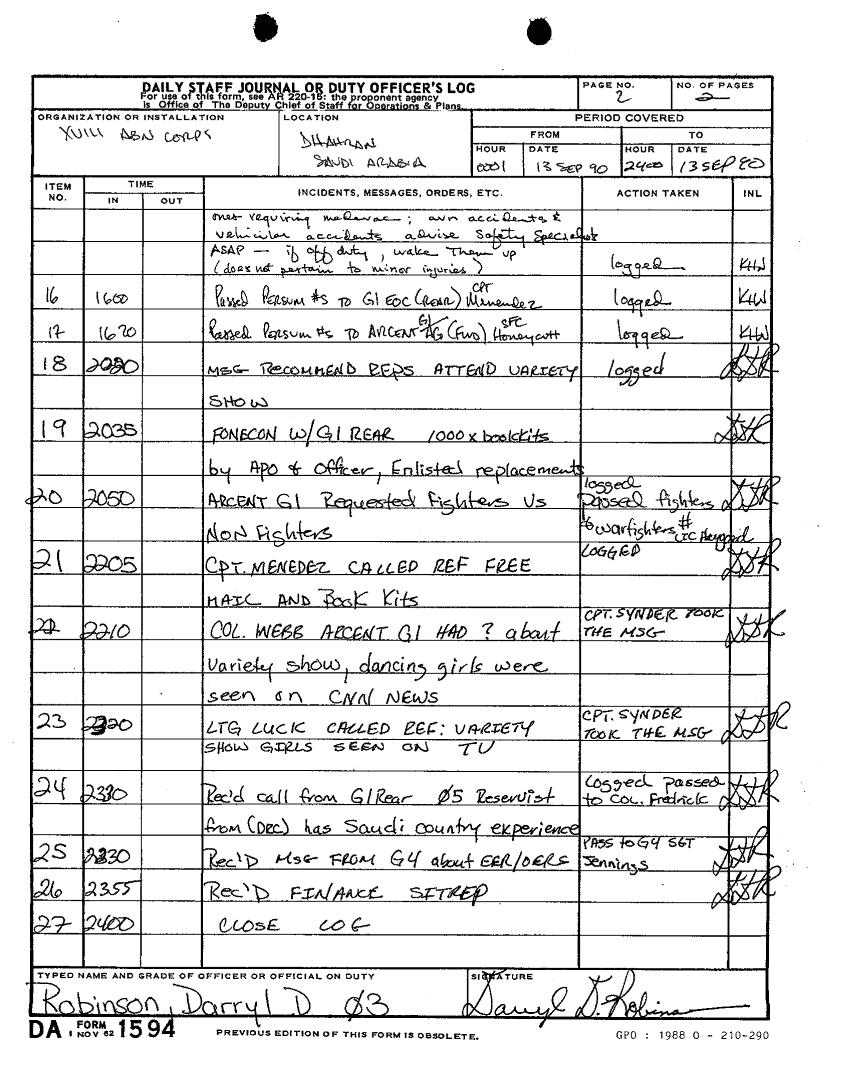 DAILY STAFF JOURNAL OR DUTY OFFICER'S LOG
For use of this form, see AR 220-15: the proponent agency
is Office of The Deputy Chief of Staff for Operations & Plans.
PAGE NO.
2
NO. OF PAGES
2
ORGANIZATION OR INSTALLATION
XVIII ABN CORPS
LOCATION
DHAHRAN
SAUDI ARABIA
PERIOD COVERED
FROM
TO
HOUR
DATE
HOUR
DATE
0001
13 SEP 90
2400
13 SEP 90
ITEM NO.
TIME
IN
OUT
INCIDENTS, MESSAGES, ORDERS, ETC.
ACTION TAKEN
INL
ones requiring medevac; avn accidents &
vehicular accidents advise Safety Specialist
ASAP — if off duty, wake them up
(does not pertain to minor injuries) logged KHW
16 1600 Passed PERSUM #s TO G1 EOC (REAR) CPT Menendez logged KHW
17 1620 Passed PERSUM #s TO ARCENT G1/AG (FWD) SFC Honeycutt logged KHW
18 2020 MSG RECOMMEND REPS ATTEND VARIETY logged
SHOW
19 2035 FONECON W/G1 REAR 1000 x bookkits
by APO & Officer, Enlisted replacements
logged
20 2050 ARCENT G1 Requested Fighters vs passed fighters
NON Fighters # warfighters # LTC
21 2205 CPT. MENEDEZ CALLED REF FREE LOGGED
MAIL AND Book Kits
22 2210 COL. WEBB ARCENT G1 HAD ? about CPT. SYNDER TOOK THE MSG
Variety show, dancing girls were
seen on CNN NEWS
23 2220 LTG LUCK CALLED REF: VARIETY CPT. SYNDER TOOK THE MSG
SHOW GIRLS SEEN ON TV
24 2330 Rec'd call from G1 Rear Ø5 Reservist Logged passed to COL. Fredrick
from (DEC) has Saudi country experience
25 2330 Rec'D MSG FROM G4 about EER/OERS PASS to G4 SGT Jennings
26 2355 Rec'D FINANCE SITREP
27 2400 CLOSE LOG
TYPED NAME AND GRADE OF OFFICER OR OFFICIAL ON DUTY
Robinson, Darryl D Ø3
SIGNATURE
Darryl D. Robinson
DA FORM 1594
1 NOV 62
PREVIOUS EDITION OF THIS FORM IS OBSOLETE.
GPO : 1988 O - 210-290